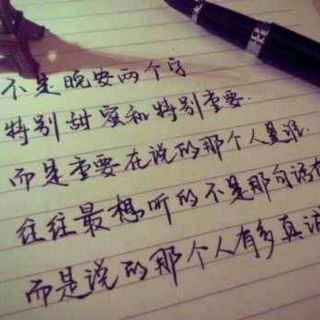 不是晚安两个字
特别甜蜜和特别重要.
而是重要在说的那个人是谁.
往往最想听的不是那句话
而是说的那个人有多真诚